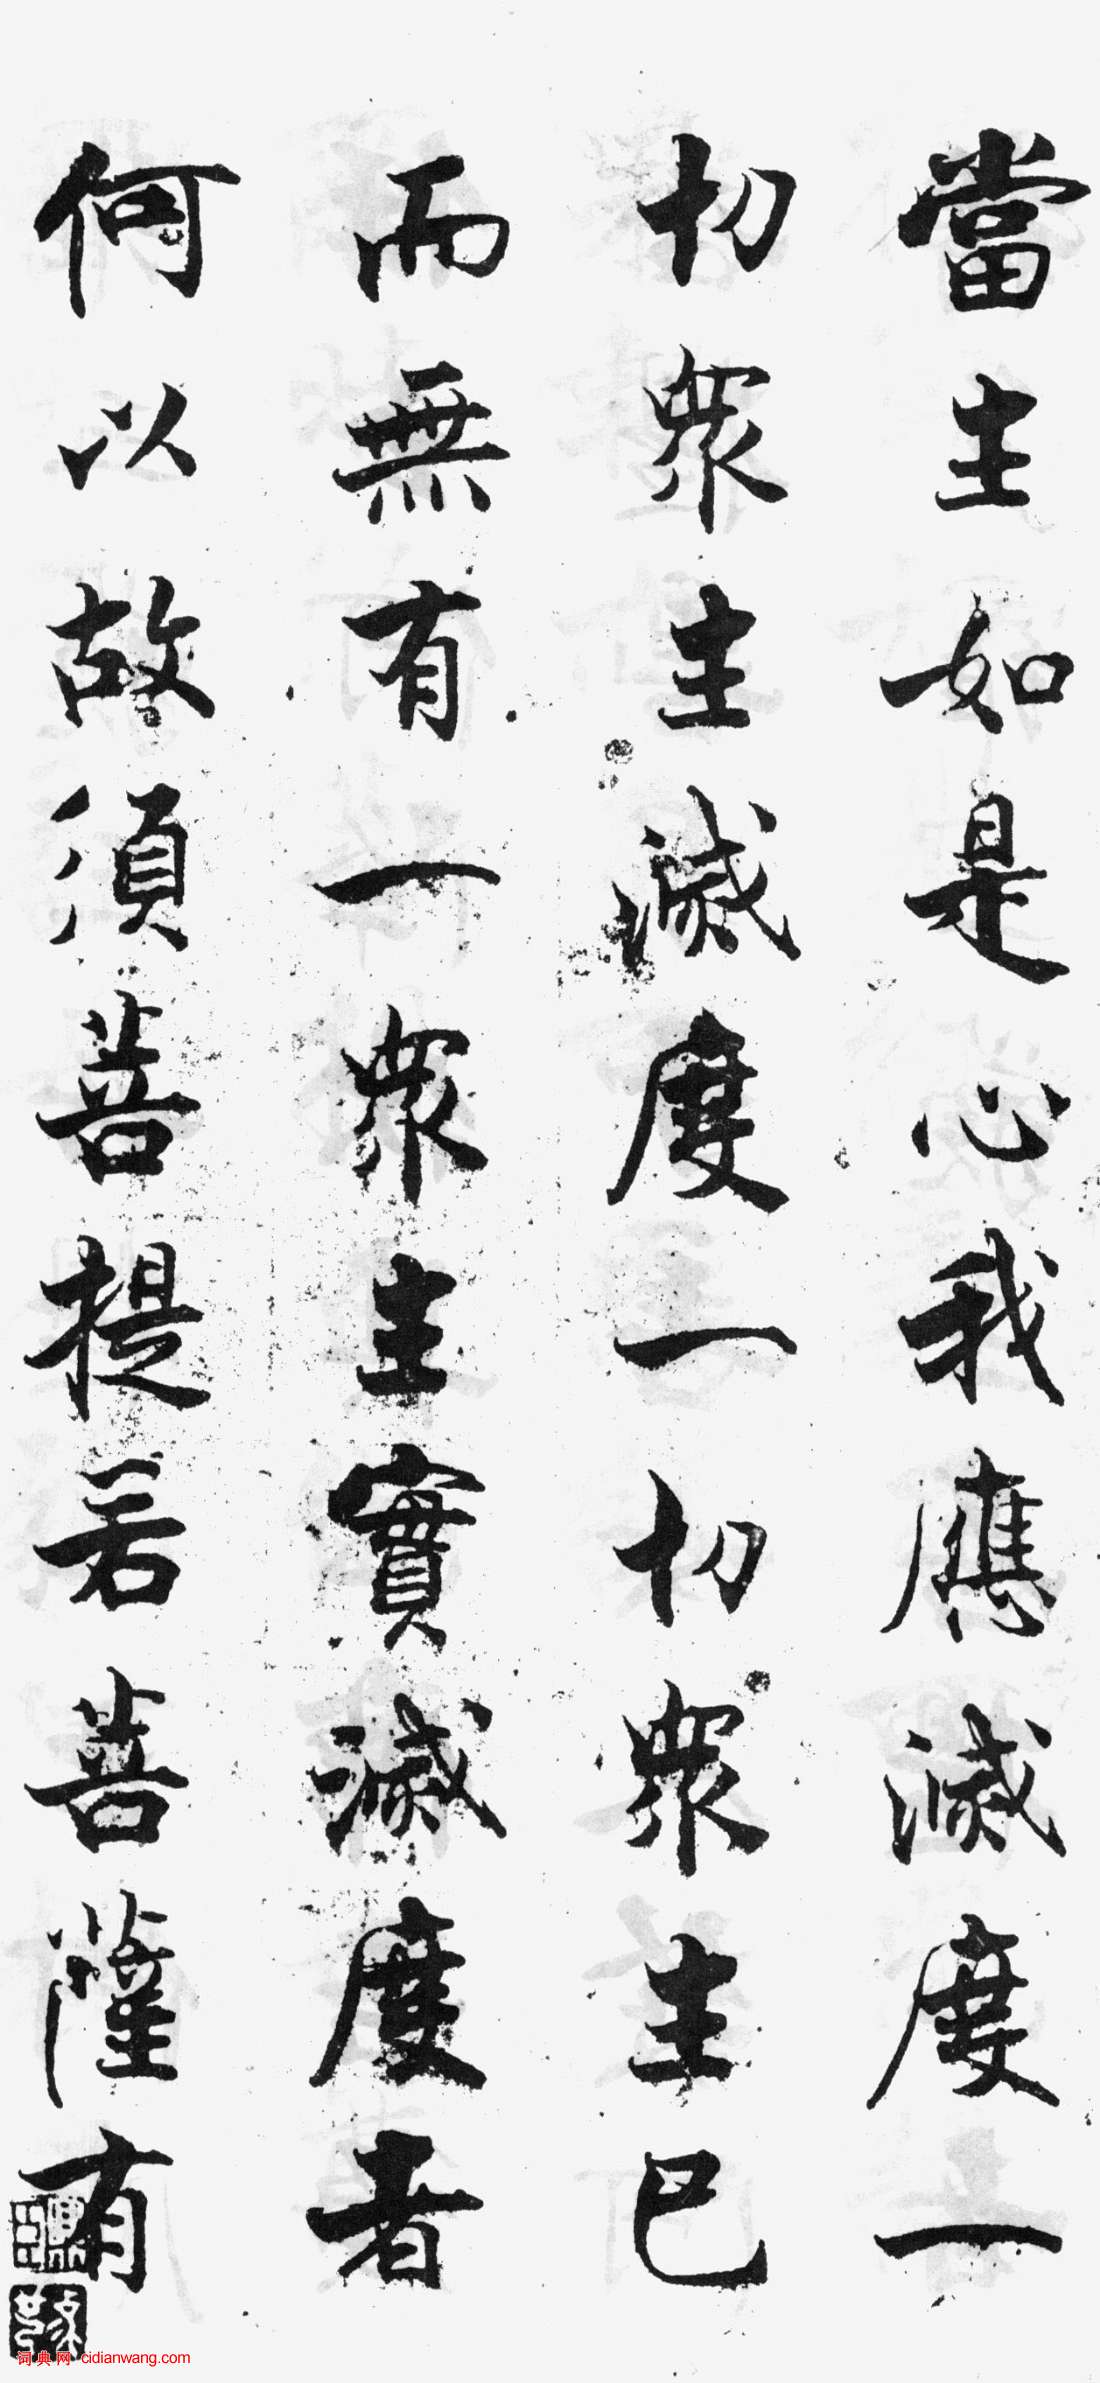 當生如是心我應滅度一
切眾生滅度一切眾生已
而無有一眾生實滅度者
何以故須菩提若菩薩有
词典网 cidianwang.com